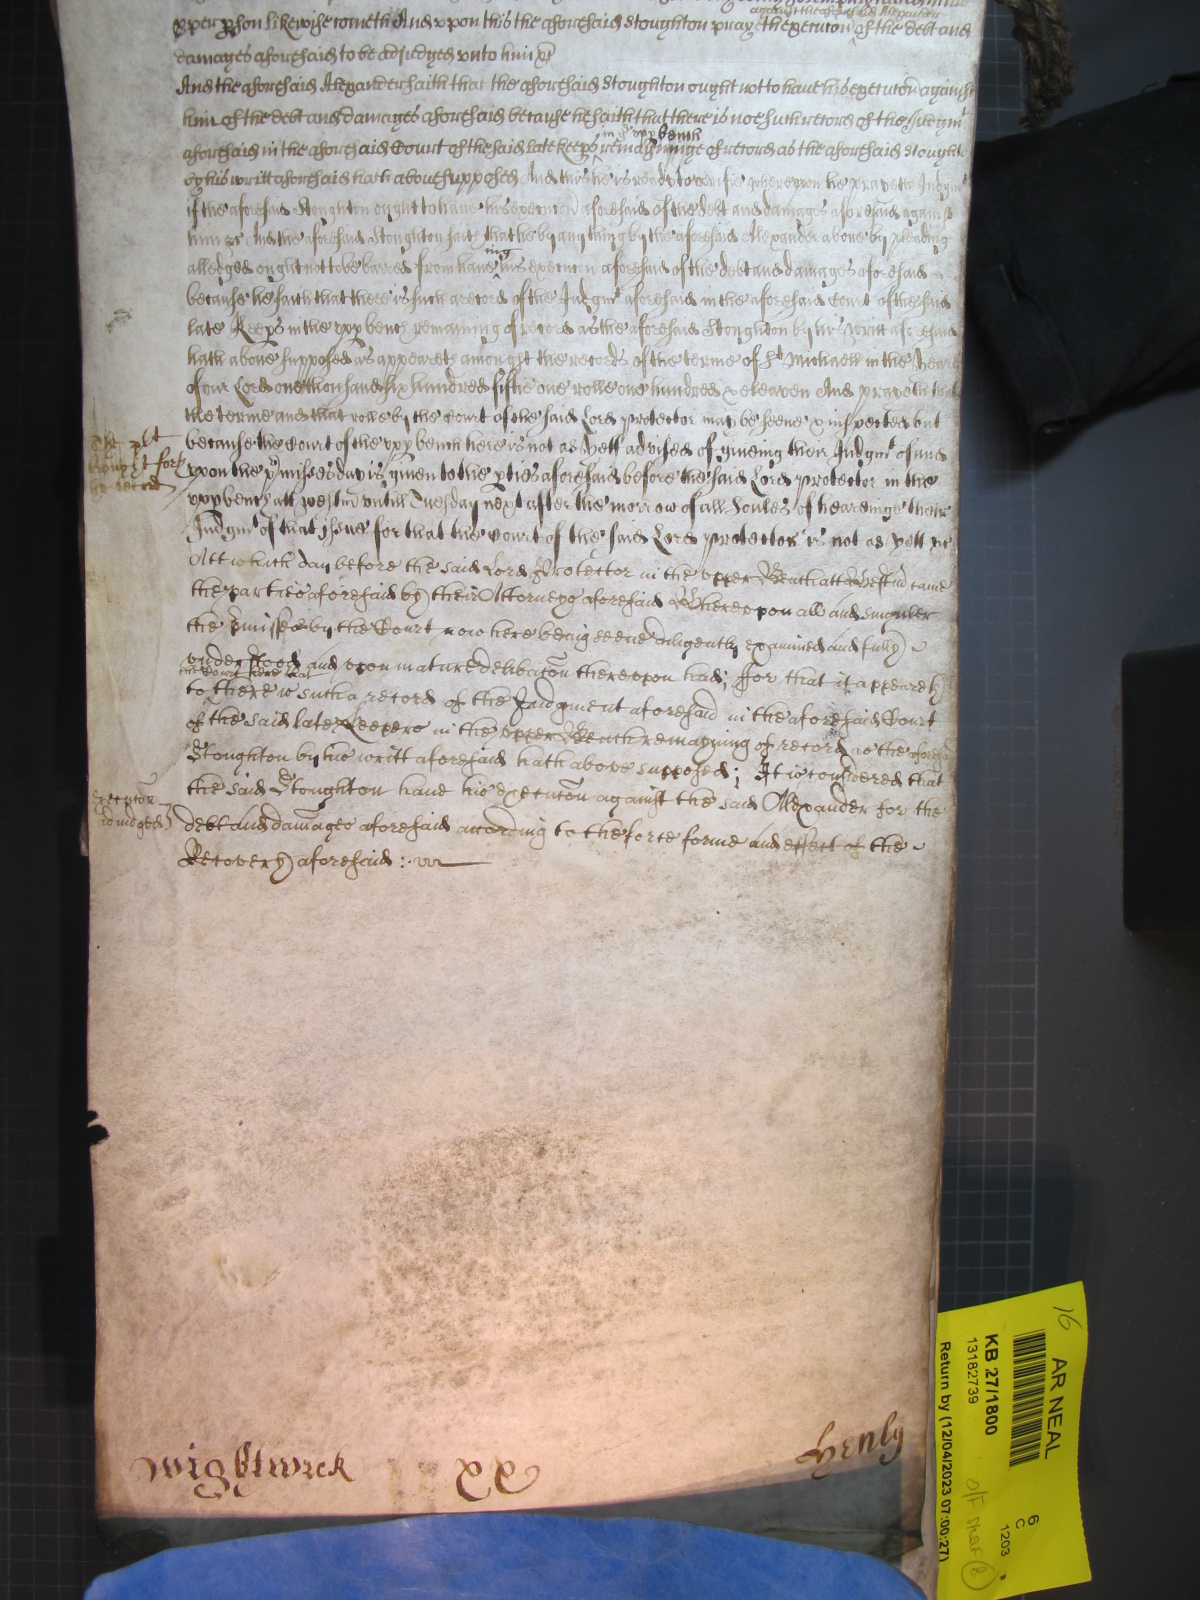 p̱per p̱son likewise cometh And vpon this the aforesaid Stoughton prays the execucon of the debt and
against the aforesaid Alexander
damages aforesaid to be adiudged vnto him &c
And the aforesaid Alexander saith that the aforesaid Stoughton ought not to haue his execucon against
him of the debt and damages aforesaid because he saith that there is noe such record of the Judgmt
aforesaid in the aforesaid Court of the said late keeps remayninge of record as the aforesaid Stoughton
in the vpp bench
by his writt aforesaid hath aboue supposed And this he is ready to verifie wherevpon he prayeth Judgmt
if the aforesaid Stoughton ought to haue his execucon aforesaid of the debt and damages aforesaid against
him &c And the aforesaid Stoughton saith that he by any thing by the aforesaid Alexander aboue by pleading
alledged ought not to be barred from haue his execucon aforesaid of the debt and damages aforesaid
ing
because he saith that there is such a record of the Judgmt aforesaid in the aforesaid Court of the said
late Keeps in the vpp bench remaining of record as the aforesaid Stoughton by his writt aforesaid
hath aboue supposed as appeareth amongst the records of the terme of St Michaell in the yeare
of our Lord one thousand six hundred fiftie one rolle one hundred & eleaven And prayeth that
the terme and that rolle by the Court of the said Lord protector may be seene & inspected but
because the Court of the vpp bench here is not as yett advised of giueing their Judgmt of and
vpon the p̱misses day is giuen to the p̱ties aforesaid before the said Lord protector in the
vpp bench att westm vntill Tuesday next after the morrow of all Soules of heareinge their
Judgmt of that issue for that the Court of the said Lord protector is not as yett &c
Att which day before the said Lord Protector in the vpper Bench att Westm came
the parties aforesaid by their Attorneys aforesaid Wherevpon all and singuler
the p̱misses by the Court now here being seene diligently examined and fully
vnderstood and vpon mature delibacon therevpon had; ffor that it appeareth
the Court here that
to there is such a record of the Judgment aforesaid in the aforesaid Court
of the said late Keepers in the vpper Bench remayning of record as the aforesaid
Stoughton by his writt aforesaid hath aboue supposed; It is considered that
the said Stoughton haue his execucon against the said Alexander for the
debt and damages aforesaid according to the force forme and effect of the
Recovery aforesaid :
the plt
brought forth
he record
Execucon
adiudged
Wightwick
XX
Henly
16
AR NEAL
KB 27/1800
13182739
Return by (12/04/2023 07:00:27)
6
C
1203